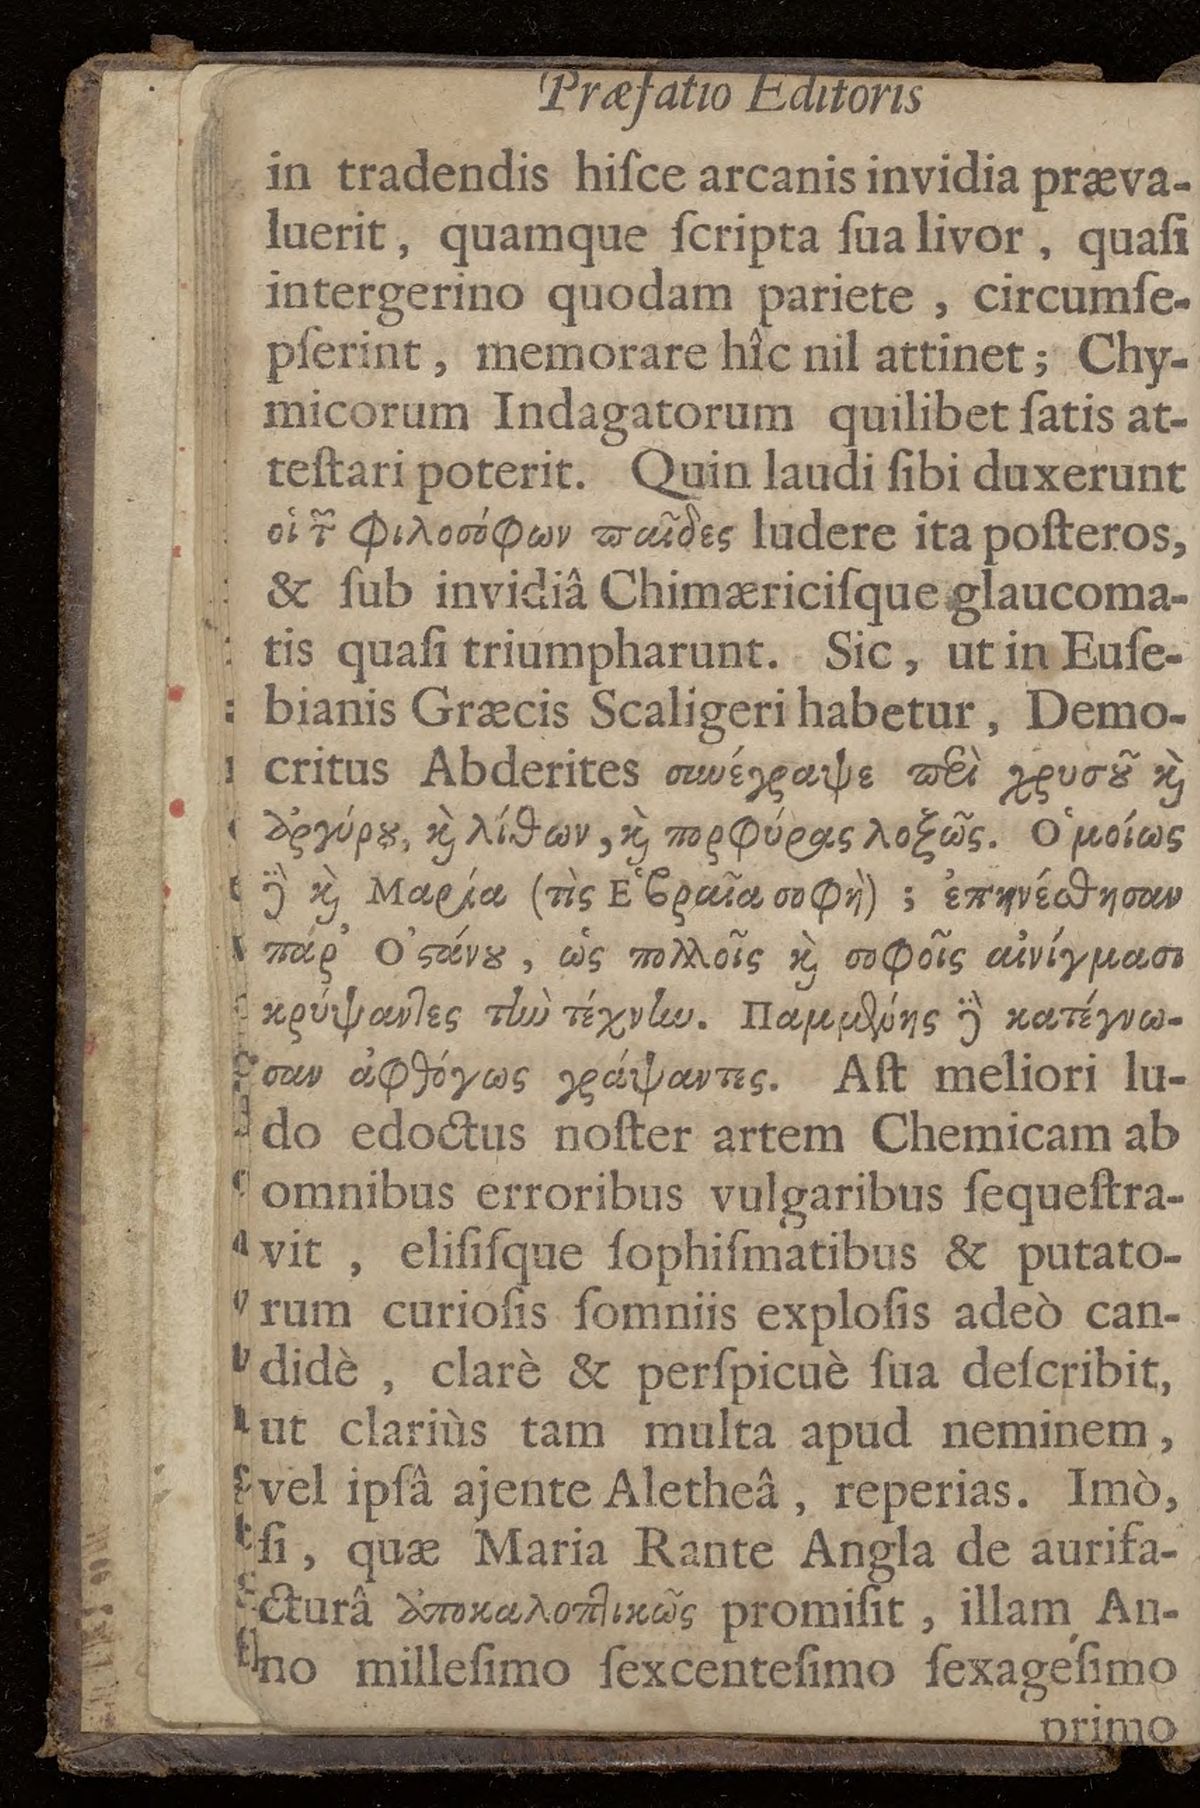 Præfatio Editoris
in tradendis hiſce arcanis invidia præva-
luerit, quamque ſcripta ſua livor, quaſi
intergerino quodam pariete, circumſe-
pſerint, memorare hîc nil attinet; Chy-
micorum Indagatorum quilibet ſatis at-
teſtari poterit. Quin laudi ſibi duxerunt
οἱ τ῀ Φιλοσόφων παῖδες ludere ita poſteros,
& ſub invidiâ Chimæriciſque glaucoma-
tis quaſi triumpharunt. Sic, ut in Euſe-
bianis Græcis Scaligeri habetur, Demo-
critus Abderites συνέγραψε περὶ χρυσοῦ καὶ
ἀργύρου, καὶ λίθων, καὶ πορφύρας λοξῶς. Ὁμοίως
δὲ καὶ Μαρία (τὶς Ἑβραῖα σοφὴ); ἐπηνέθησαν
πάρ᾽ Ὀστάνου, ὡς πολλοῖς καὶ σοφοῖς αἰνίγμασι
κρύψαντες τὴν τέχνην. Παμμένης δὲ κατέγνω-
σαν ἀφθόγως γράψαντες. Aſt meliori lu-
do edoctus noſter artem Chemicam ab
omnibus erroribus vulgaribus ſequeſtra-
vit, eliſiſque ſophiſmatibus & putato-
rum curioſis ſomniis exploſis adeò can-
didè, clarè & perſpicuè ſua deſcribit,
ut clariùs tam multa apud neminem,
vel ipſâ ajente Aletheâ, reperias. Imò,
ſi, quæ Maria Rante Angla de aurifa-
cturâ ἀποκαλοπτικῶς promiſit, illam An-
no milleſimo ſexcenteſimo ſexageſimo
primo